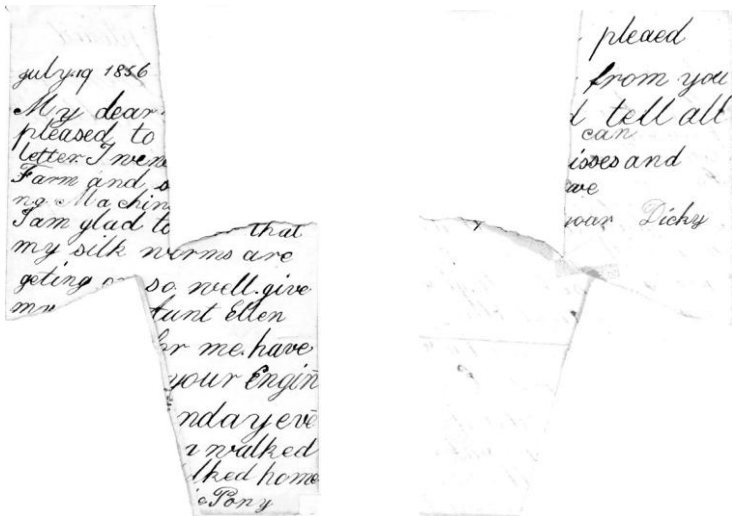 July 19 1856
My dear
pleased to
letter. I went
Farm and s
ng Machin
I am glad to that
my silk worms are
geting on so well. give
my Aunt Ellen
for me. have
your Engin
nday eve
walked
lked home
Pony
pleaed
from you
d tell all
can
isses and
ave
your Dicky